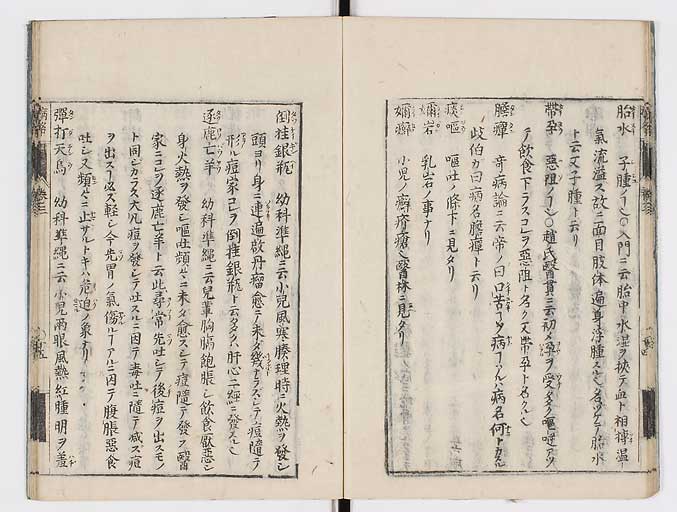 胎水 子腫ノ〇入門ニ云胎中水湿ヲ挾テ血ト相搏湿
氣流溢ス故ニ面目肢体遍身浮腫スルヲ名ツケテ胎水
ト云又子腫ト云リ
帯孕 惡阻ノ〇趙氏醫貫ニ云初メ孕ヲ受
テ飲食下ラスコレヲ惡阻ト名ク又帯孕ト名ク
膽癉 奇病論ニ云帝ノ曰口苦ヲ病アル病名何トカ
岐伯カ曰病名膽癉ト云リ
痰嘔 嘔吐ノ條下ニ見タリ
嬭岩 乳岩ノ事ナリ
嬭癬 小児ノ癬疥瘡醫林ニ見タリ
倒挂銀瓶 幼科準繩ニ云小児風寒腠理時ニ火熱ヲ發シ
頭ヨリ身ニ連遍敢丹瘤愈テ未タ幾ナラスシテ痘隨テ
形ル痘家コレヲ倒挂銀瓶ト云肝心二經ニ發スル
逐鹿亡羊 幼科準繩ニ云兒輩胸膈飽脹シ飲食厭惡シ
身火熱ヲ發シ嘔吐頻ニ未タ愈スシテ痘隨テ發ス醫
家コレヲ逐鹿亡羊ト云此尋常先吐シテ後痘ヲ出スモノ
ト同シカラス大凡痘ヲ發シテ吐スルニ因テ毒吐ニ隨テ减ス痘
ヲ出ス必ス軽シ今先胃ノ氣傷ルアルニ因テ腹脹惡食
吐シス頻ニ止サルトキハ危迫ノ象ナリ
彈打天鳥 幼科準繩ニ云小児兩眼風熱紅腫明ヲ羞